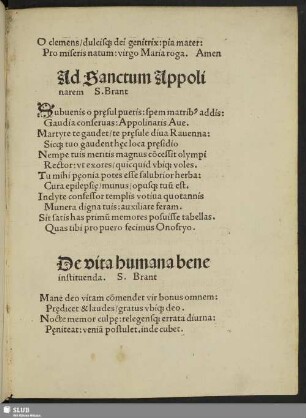 O clemens/ dulcisq; dei genitrix: pia mater:
Pro miseris natum: virgo Maria roga. Amen
Ad Sanctum Appoli
narem S. Brant
Subuenis o pręsul pueris: spem matribꝰ addis:
Gaudia conseruas: Appolinaris Aue.
Martyre te gaudet/ te pręsule diua Rauenna:
Sicq; tuo gaudent hęc loca pręsidio
Nempe tuis meritis magnus cōcessit olympi
Rector: vt exores/ quicquid vbiq; voles.
Tu mihi pęonia potes esse salubrior herba:
Cura epilepsię/ munus/ opusq; tuū est.
Inclyte confessor templis votiua quotannis
Munera digna tuis: auxiliare feram.
Sit satis has primū memores posuisse tabellas.
Quas tibi pro puero fecimus Onofryo.
De vita humana bene
instituenda. S. Brant
Mane deo vitam cōmendet vir bonus omnem:
Prędicet & laudes/ gratus vbiq; deo.
Nocte memor culpę: relegensq; errata diurna:
Pęniteat: veniā postulet. inde cubet.
SLUB